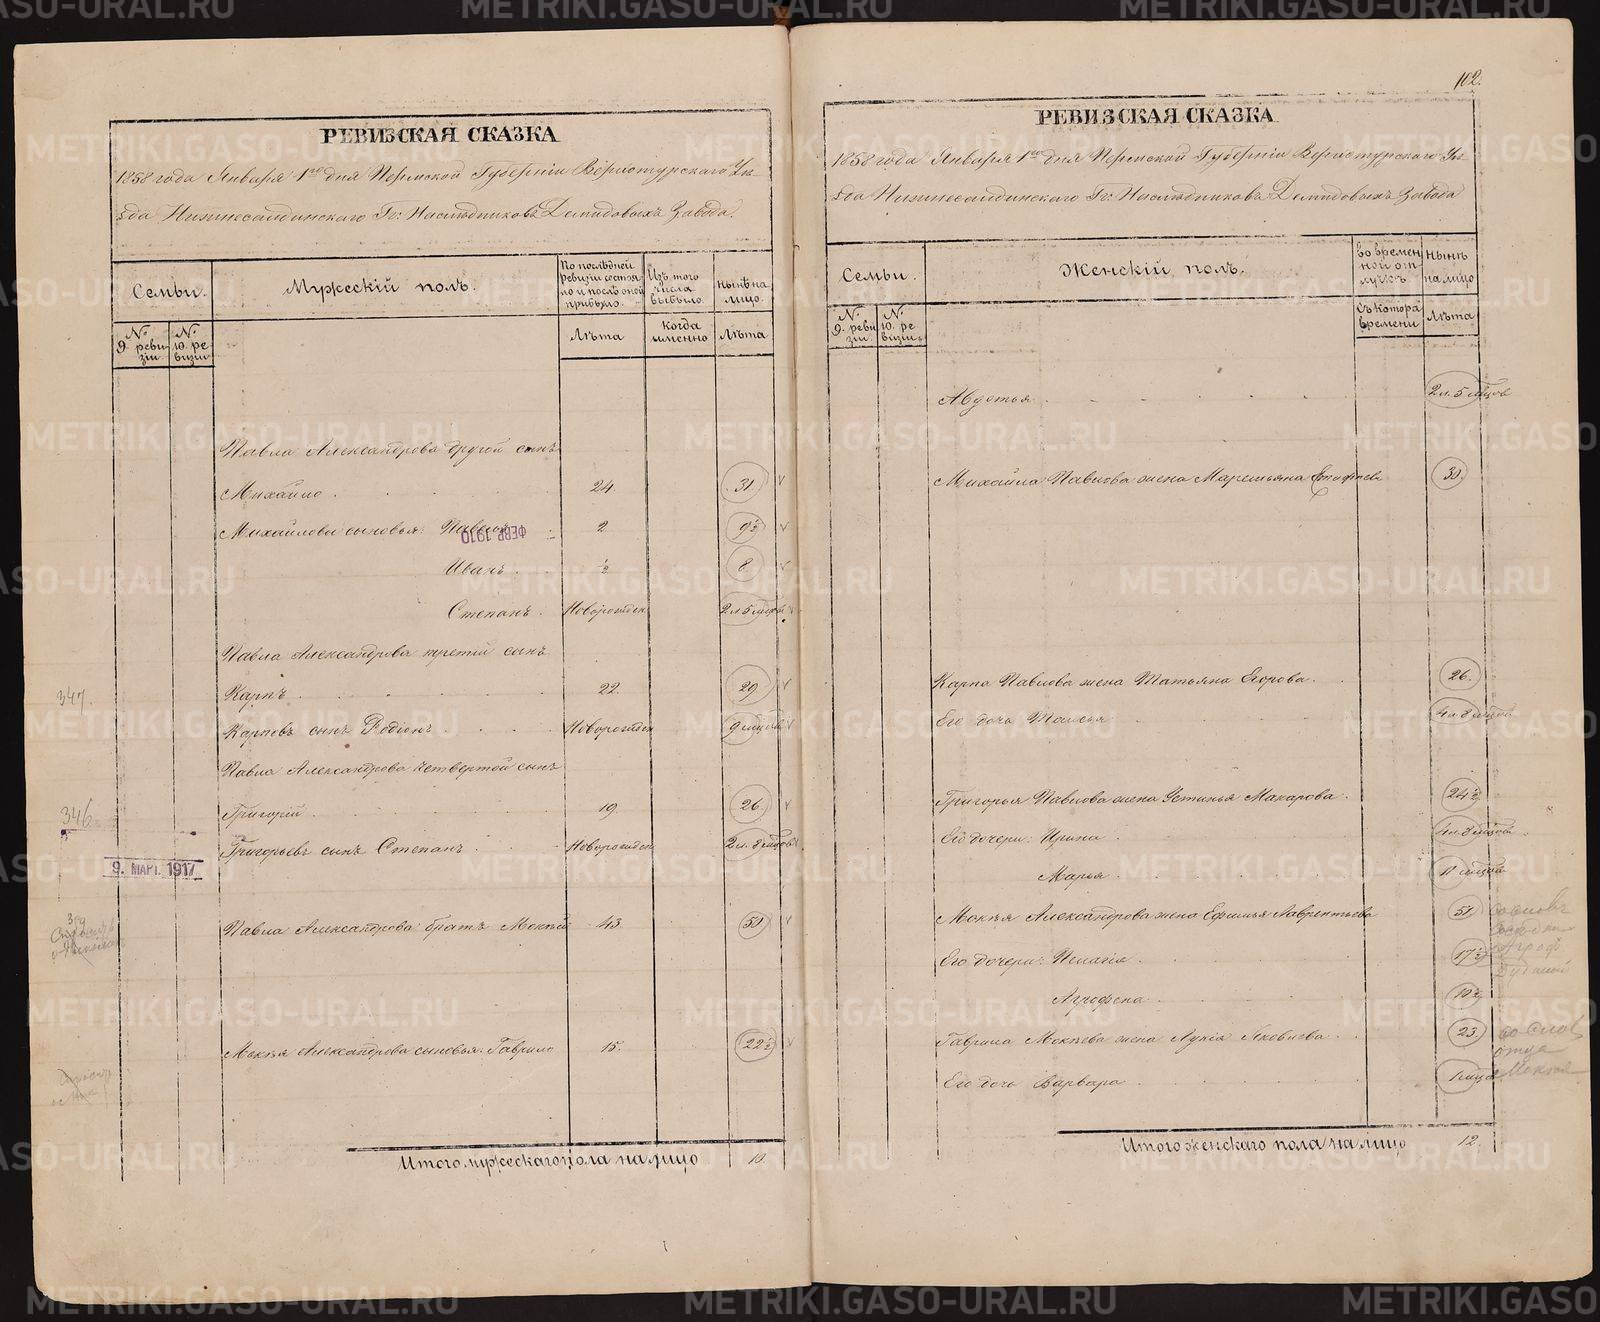 РЕВИЗСКАЯ СКАЗКА
1858 года Января 1го дня Пермской Губерніи Верхотурскаго Уѣ-
зда Нижнесалдинскаго Гг: Наслѣдниковъ Демидовыхъ Завода.
Семьи.
Мужескій полъ.
По послѣдней ревизіи состояло и послѣ оной прибыло.
Изъ того числа выбыло.
Нынѣ на лицо.
№ 9. ревизіи
№ 10. ревизіи
Лѣта
когда именно
Лѣта
Павла Александрова другой сынъ
Михайло 24. 31.
Михайловы сыновья: Павелъ 2 9½
ФЕВР. 1910
Иванъ ½ 8
Степанъ. Новорожден 2 л 5 мцов
Павла Александрова третій сынъ
347. Карпъ 22. 29
Карповъ сынъ Родіонъ Новорожден 9 мцов
Павла Александрова четвертой сынъ
346. Григорій 19. 26
Григорьевъ сынъ Степанъ Новорожден 2 л. 8 мцов
9. МАРТ. 1917
Павла Александрова братъ Мокѣй 43. 50
Мокѣя Александрова сыновья: Гаврило 15. 22½
Итого мужескаго пола на лицо 10.
102.
РЕВИЗСКАЯ СКАЗКА
1858 года Января 1го дня Пермской Губерніи Верхотурскаго Уѣ-
зда Нижнесалдинскаго Гг: Наслѣдниковъ Демидовыхъ Завода
Семьи.
Женскій полъ.
во временной отлучкѣ
Нынѣ на лицо
№ 9. ревизіи
№ 10. ревизіи
Съ котора времени
Лѣта
Авдотья 2 л. 5 мцов
Михайла Павлова жена Маремьяна 30.
Карпа Павлова жена Татьяна Егорова. 26.
Его дочь Таисья 4 л 8 мцов
Григорья Павлова жена Устинья Макарова. 24½
Его дочери: Ирина 4 л 8 мцов
Марья 11 мцов
Мокѣя Александрова жена Ефимья Лаврентьева 51
Его дочери: Пелагія 17½
Агрофена 10½
Гаврила Мокѣева жена Лукія Яковлева 23.
со слов
отца
Мокѣя
Его дочь Варвара 1 мца
Итого женскаго пола на лицо 12.
METRIKI.GASO-URAL.RU